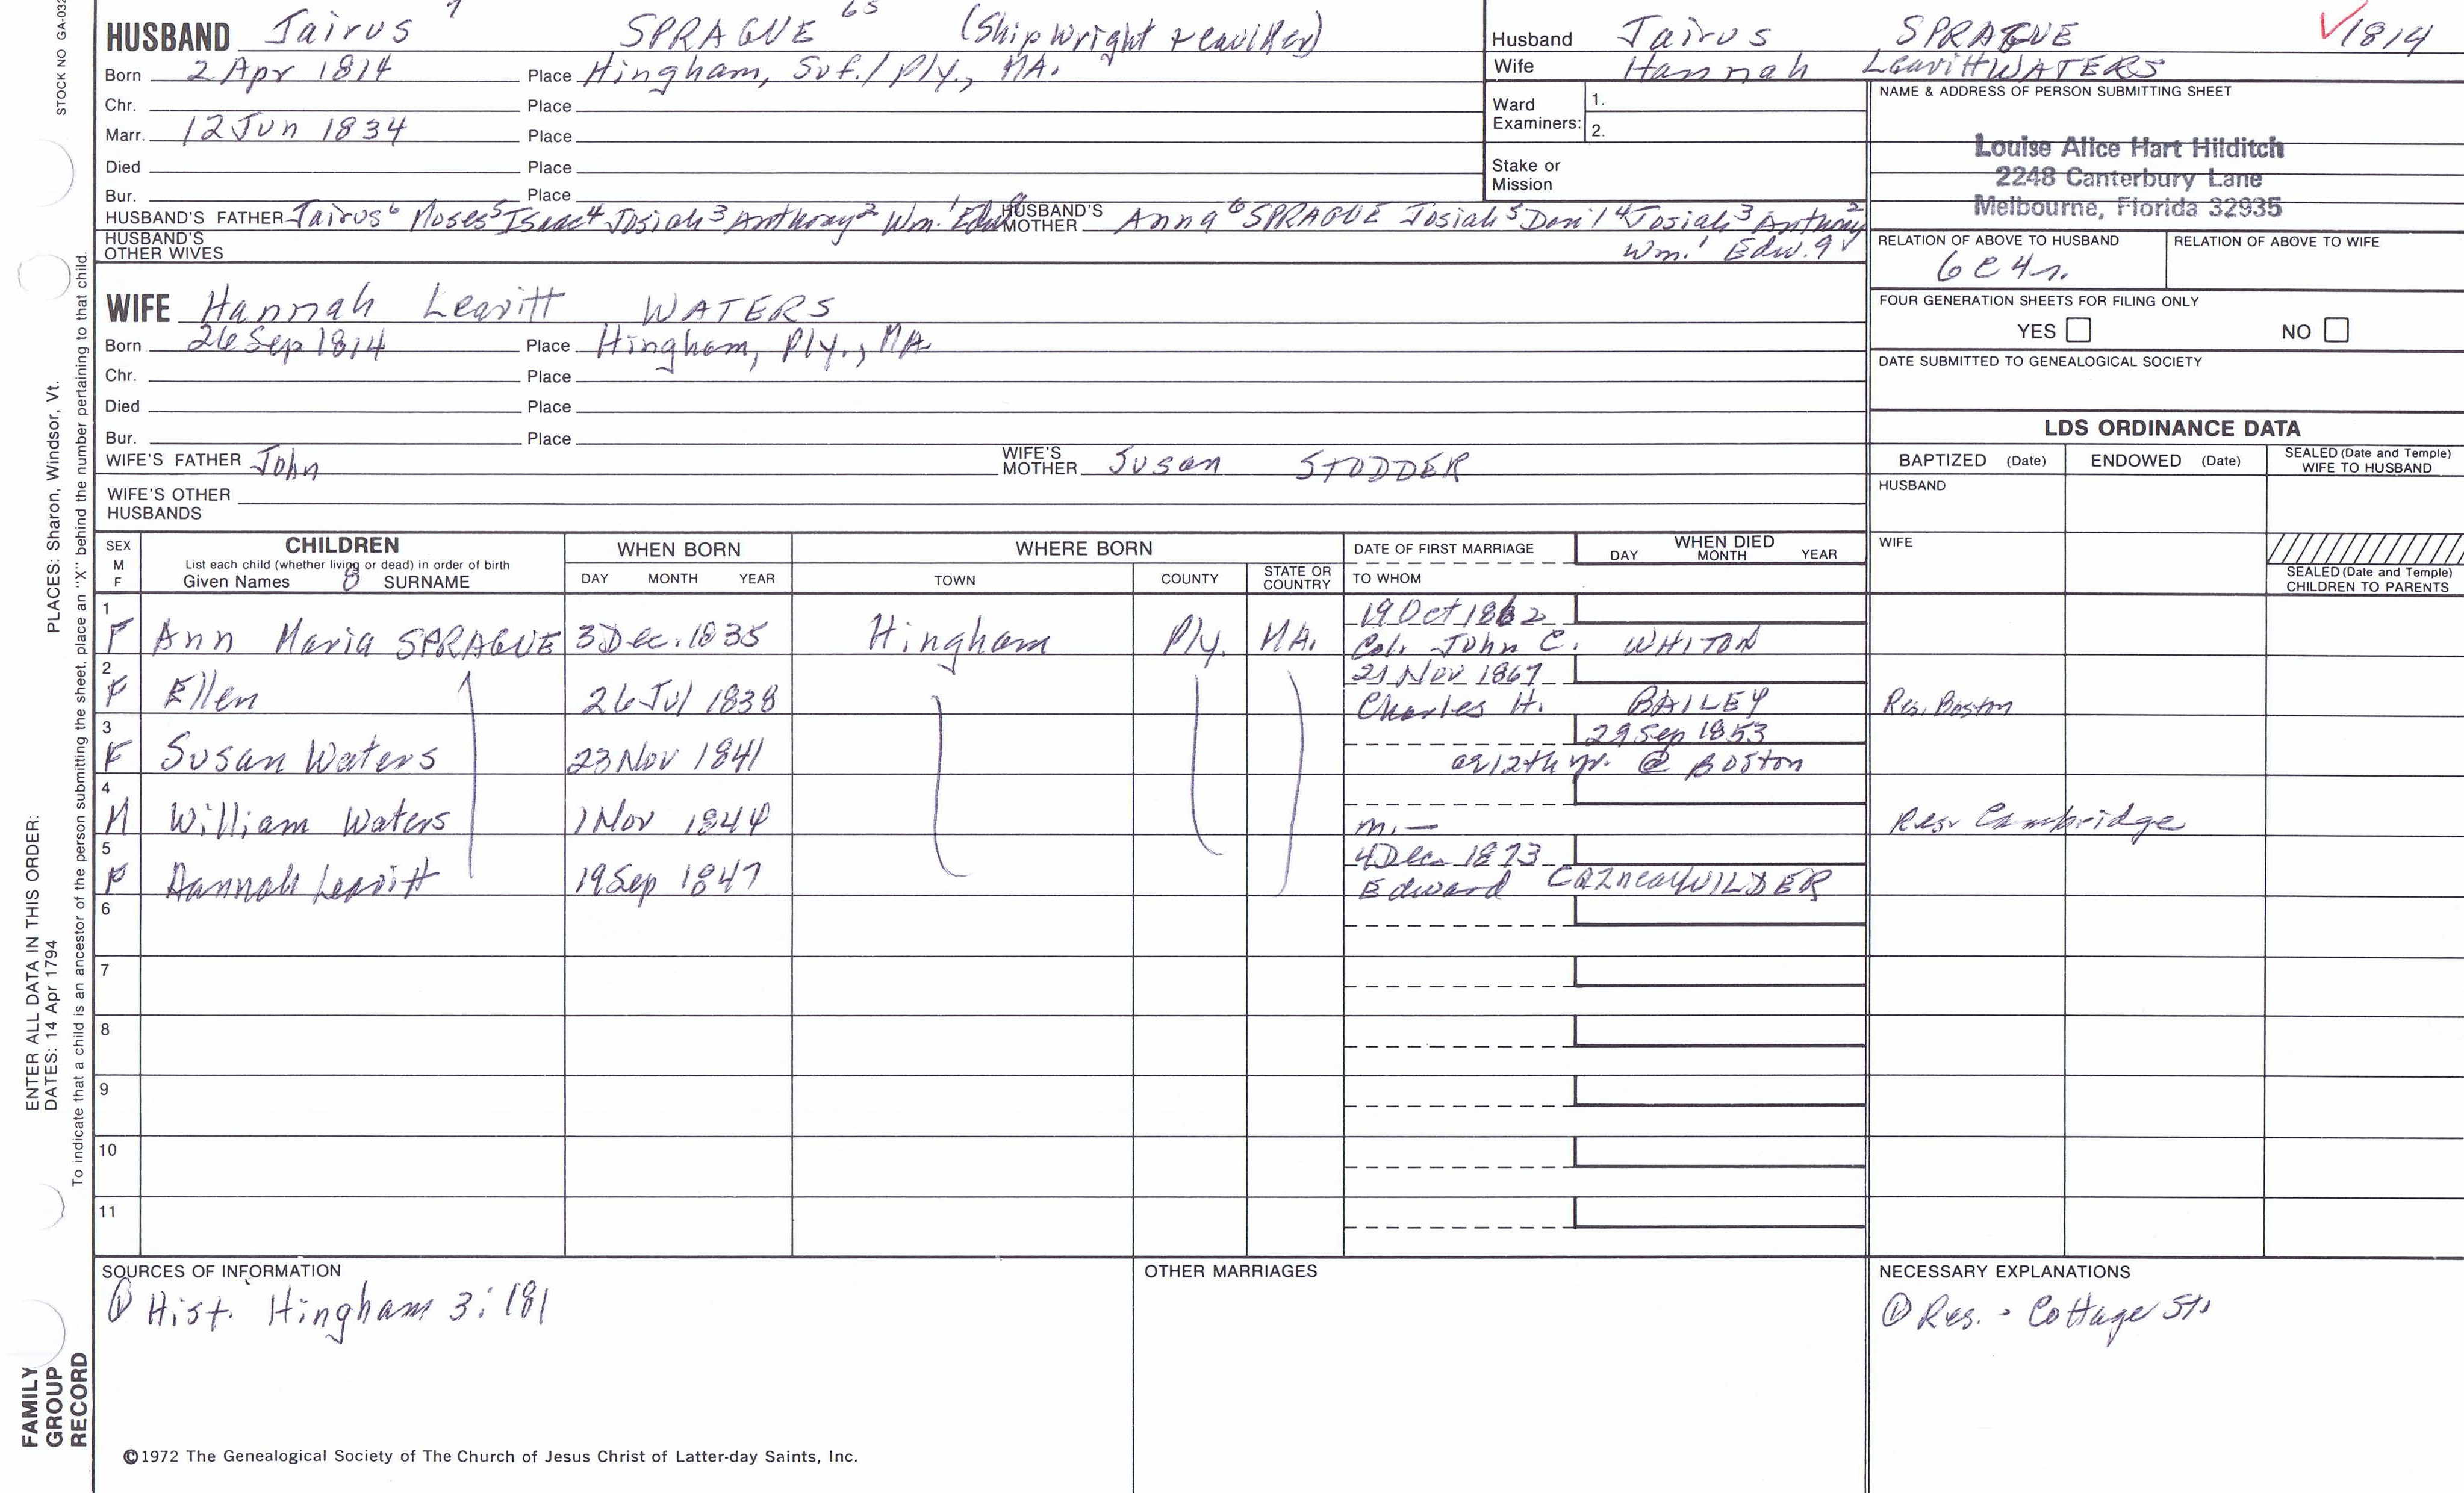 STOCK NO GA-032
HUSBAND Jairus 7 SPRAGUE 65 (Shipwright + caulker)
Born 2 Apr 1814 Place Hingham, Suf./Ply., MA.
Chr. Place
Marr. 12 Jun 1834 Place
Died Place
Bur. Place
HUSBAND'S FATHER Jairus6 Moses5 Isaac4 Josiah3 Anthony2 Wm.1 Edw. HUSBAND'S MOTHER Anna6 SPRAGUE Josiah5 Dan'l4 Josiah3 Anthony2
HUSBAND'S OTHER WIVES Wm.1 Edw.
Husband Jairus SPRAGUE √1814
Wife Hannah Leavitt WATERS
Ward Examiners: 1.
2.
Stake or Mission
NAME & ADDRESS OF PERSON SUBMITTING SHEET
Louise Alice Hart Hilditch
2248 Canterbury Lane
Melbourne, Florida 32935
RELATION OF ABOVE TO HUSBAND RELATION OF ABOVE TO WIFE
6c4r.
FOUR GENERATION SHEETS FOR FILING ONLY
YES NO
DATE SUBMITTED TO GENEALOGICAL SOCIETY
WIFE Hannah Leavitt WATERS
Born 26 Sep 1814 Place Hingham, Ply., MA
Chr. Place
Died Place
Bur. Place
WIFE'S FATHER John WIFE'S MOTHER Susan STODDER
WIFE'S OTHER HUSBANDS
LDS ORDINANCE DATA
BAPTIZED (Date) ENDOWED (Date) SEALED (Date and Temple) WIFE TO HUSBAND
HUSBAND
WIFE
SEALED (Date and Temple) CHILDREN TO PARENTS
SEX M F CHILDREN WHEN BORN WHERE BORN DATE OF FIRST MARRIAGE WHEN DIED
List each child (whether living or dead) in order of birth
Given Names 8 SURNAME DAY MONTH YEAR TOWN COUNTY STATE OR COUNTRY TO WHOM DAY MONTH YEAR
1 19 Oct 1862
F Ann Maria SPRAGUE 3 Dec. 1835 Hingham Ply. MA. Col. John C. WHITON
2 21 Nov 1867
F Ellen 26 Jul 1838 Charles H. BAILEY Res. Boston
3 29 Sep 1853
F Susan Waters 23 Nov 1841 ae 12th yr. @ Boston
4
M William Waters 1 Nov 1844 m. — Res. Cambridge
5 4 Dec 1873
F Hannah Leavitt 19 Sep 1847 Edward WILDER
6
7
8
9
10
11
SOURCES OF INFORMATION
① Hist. Hingham 3:181
OTHER MARRIAGES
NECESSARY EXPLANATIONS
① Res. - Cottage St.
©1972 The Genealogical Society of The Church of Jesus Christ of Latter-day Saints, Inc.
FAMILY GROUP RECORD
ENTER ALL DATA IN THIS ORDER:
DATES: 14 Apr 1794
PLACES: Sharon, Windsor, Vt.
To indicate that a child is an ancestor of the person submitting the sheet, place an "X" behind the number pertaining to that child.